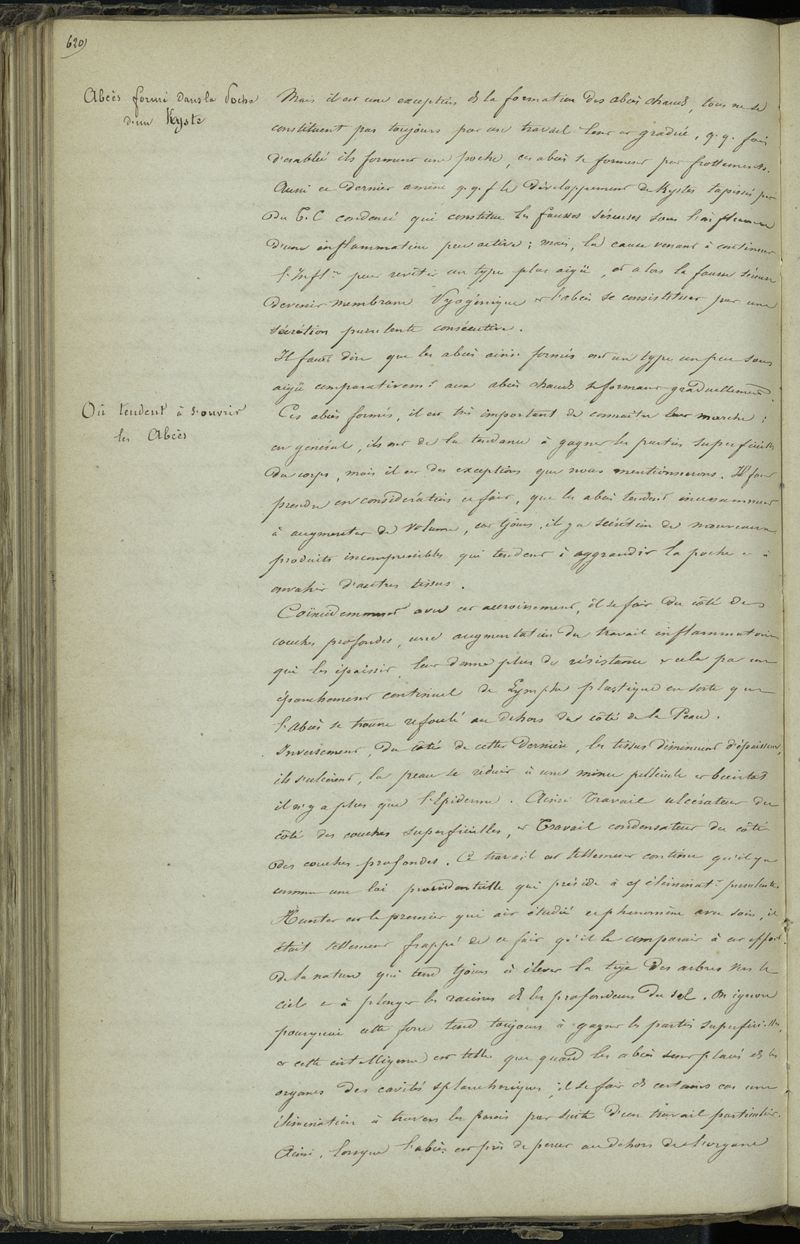 620)
Abcès formé dans la Poche
d'un Kyste
Mais il est une exception ds la formation des abcès chauds, tous ne se
constituent pas toujours par un travail lent et gradué, q.q. fois
d'emblée ils forment une poche, ces abcès se forment par frottements.
Aussi ce dernier amène q.q.f le développement de Kystes tapissés par
du T.C condensé qui constitue les fausses séreuses sous l'influence
d'une inflammation peu active ; mais, la cause venant à continuer
l'Infl.on peut revêtir un type plus aigü, et alors la fausse séreuse
devenir membrane Pyogénique et l'abcès se constituer par une
sécrétion purulente consécutive.
Il faut dire que les abcès ainsi formés ont un type un peu sous
aigü comparativem.t aux abcès chauds se formant graduellement.
Où tendent à s'ouvrir
les Abcès
Ces abcès formés, il est très important de connaître leur marche ;
en général, ils ont de la tendance à gagner les parties superficielles
du corps, mais il est des exceptions que nous mentionnerons. Il faut
prendre en considération ce fait, que les abcès tendent incessamment
à augmenter de volume, car tjours il y a sécrétion de nouveaux
produits incompressibles qui tendent à aggrandir la poche et à
envahir d'autres tissus.
Coïncidemment avec cet accroissement, il se fait du côté des
couches profondes, une augmentation du travail inflammatoire
qui les épaissit, leur donne plus de résistance et cela par un
épanchement continuel de Lymphe plastique en sorte que
l'Abcès se trouve refoulé au dehors du côté de la Peau.
Inversement, du côté de cette dernière, les tissus diminuent d'épaisseur,
ils s'ulcèrent, la peau se réduit à une mince pellicule et bientôt
il n'y a plus que l'Epiderme. Ainsi Travail ulcérateur du
côté des couches superficielles, et Travail condensateur du côté
des couches profondes. Ce travail est tellement continu qu'il y a
comme une loi providentielle qui préside à cs éliminat.s purulentes.
Hunter est le premier qui ait étudié ce phénomène avec soin ; il
était tellement frappé de ce fait qu'il le comparait à cet effort
de la nature qui tend tjours à élever la tige des arbres vers le
ciel et à plonger les racines ds les profondeurs du sol. On ignore
pourquoi cette force tend toujours à gagner les parties superficielles,
et cette intelligence est telle que quand les abcès sont placés ds les
organes des cavités splanchniques, il se fait ds certains cas une
élimination à travers les parois par suite d'un travail particulier.
Ainsi, lorsque l'abcès est près de percer au dehors de l'organe